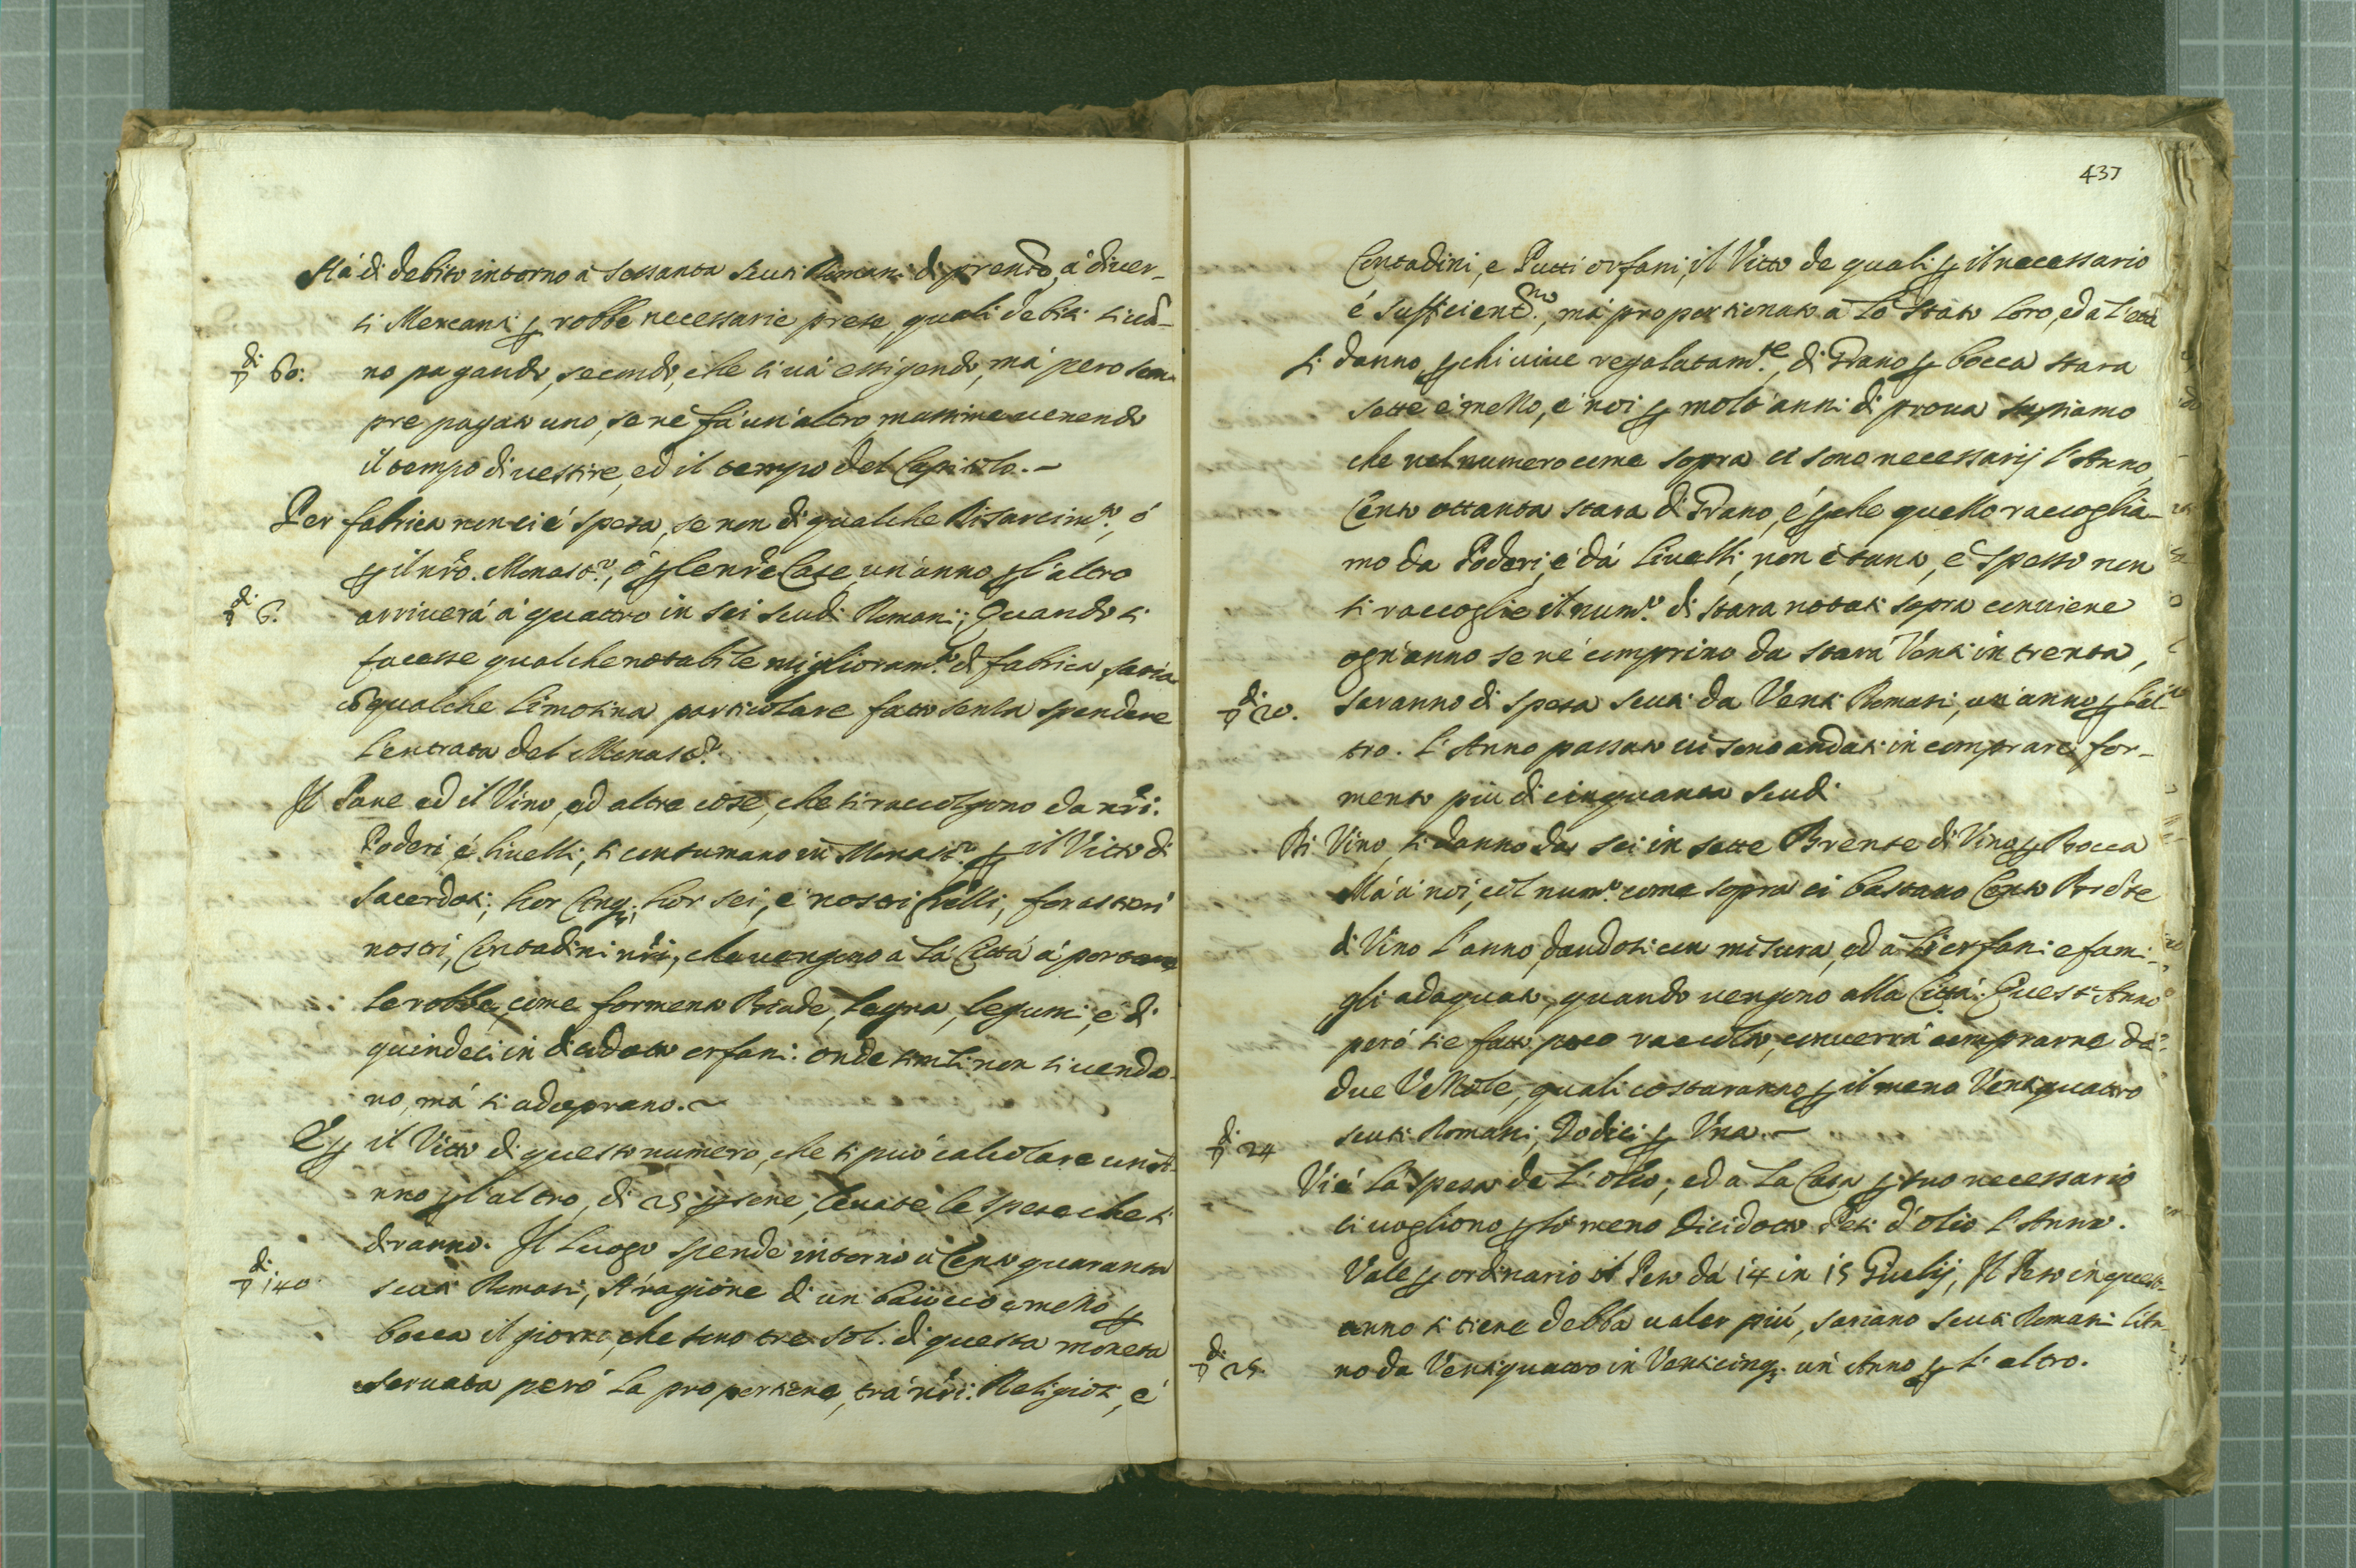 Hà di debito intorno à sessanta scuti Romani di presente, à diuer-
si Mercanti p robbe necessarie prese, quali debiti si uã-
di 60: no pagando, secondo, che si uà essigendo, mà pero sem-
pre pagato uno, se nè fà un'altro, massime uenendo
il tempo di uestire, ed il tempo del Capitolo.~
Per fabrica non ci è spesa, se non di qualche Risarcim.to, ó
p il nr̃o. Monast.o, ó p le nr̃e Case, un'anno p l'altro
di 6. arriuerà à quattro in sei scudi Romani; Quando si
facesse qualche notabile miglioram.to di fabrica, saria
cõ qualche limosina particolare fatto senza spendere
l'entrata del Monast.o
Il Pane ed il Vino, ed altre cose, che si raccolgono da nr̃i:
Poderi, é liuelli, si consumano in Monast.o p il Vitto di
sacerdoti, hor Cinq;, hor sei, é nostri frãlli, forastieri
nostri, Contadini nr̃i, che uengono à la Città à portare
le robbe, come formento Biade, legna, legumi, é di
quindeci in dicidotto orfani: onde simili non si uendo-
no, mà si adoprano.~
E p il Vitto di questo numero, che si può calcolare un'A-
nno p l'altro, di 25 p sone, leuate le spese che si
diranno. Il Luogo spende intorno à Cento quaranta
di 140 scuti Romani, A' ragione di un baiocco e mezzo p
bocca il giorno, che sono tre sol. di questa moneta
seruata però la proportione, trà nr̃i: Religiosi, é
437
Contadini, e Putti orfani, il Vitto de quali p il necessario
é sufficient.mo, mà proportionato à lo stato loro, ed a l'età
si danno, p chi uiue regolatam.te, di Grano p bocca stara
sette é mezzo, é noi p molt'anni di proua sappiamo
che nel numero come sopra ci sono necessarij l'Anno,
Cento ottanta stara di Grano, é p che quello raccoglia-
mo da Poderi, é dà Liuelli, non è tanto, é spesso non
si raccoglie il num.o di stara notati sopra conuiene
ogn'anno se nè comprino da stara Venti in trenta,
di 20. saranno di spesa scuti da Venti Romani, un'anno p l'al-
tro. L'Anno passato ui sono andati in comprare for-
mento più di cinquanta scudi
Di Vino si danno da sei in sette Brente di Vino p Bocca
Mà à noi, col num.o come sopra ci bastano Cento Brẽte
di Vino l'anno, dandosi con misura, ed a li orfani e fami-
gli adaquato, quando uengono alla Città. Quest'Anno
però si è fatto poco raccolto, conuerrà comprarne da
due Vezzole, quali costaranno p il meno Ventiquattro
di 24 scuti Romani, Dodici p Vna.~
Vi é la spesa de l'olio; ed a la Casa p suo necessario
ci uogliono p lo meno dicidotto Pesi d'olio l'Anno.
Vale p ordinario il Peso dà 14 in 15 Giulij, Il Peso in quest-
anno si tiene debba ualer più, sariano scuti Romani l'An-
di 25 no da Ventiquattro in Venticinq; un Anno p l'altro.